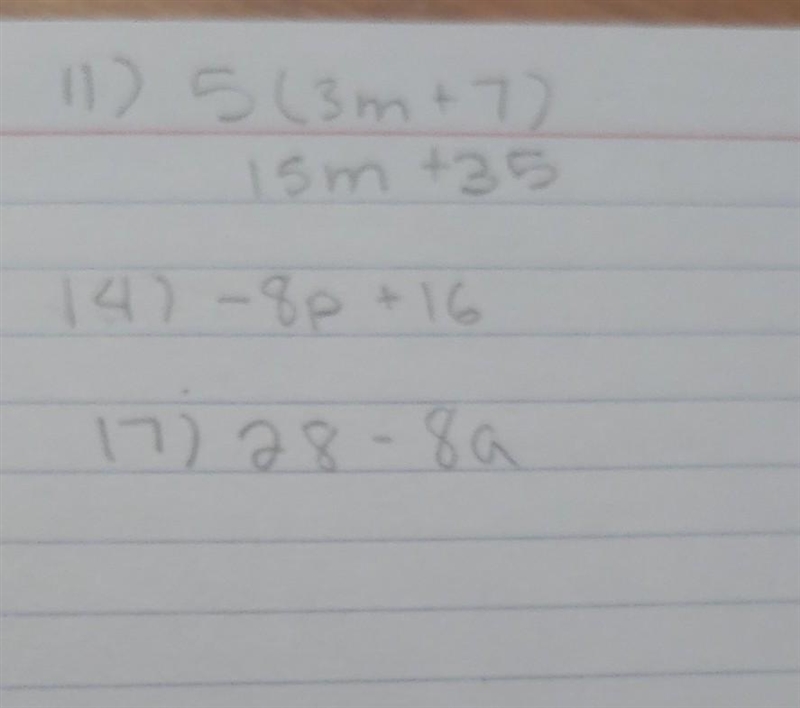 11) 5(3m+7)
15m +35
14) -8p + 16
17) 28 - 8a